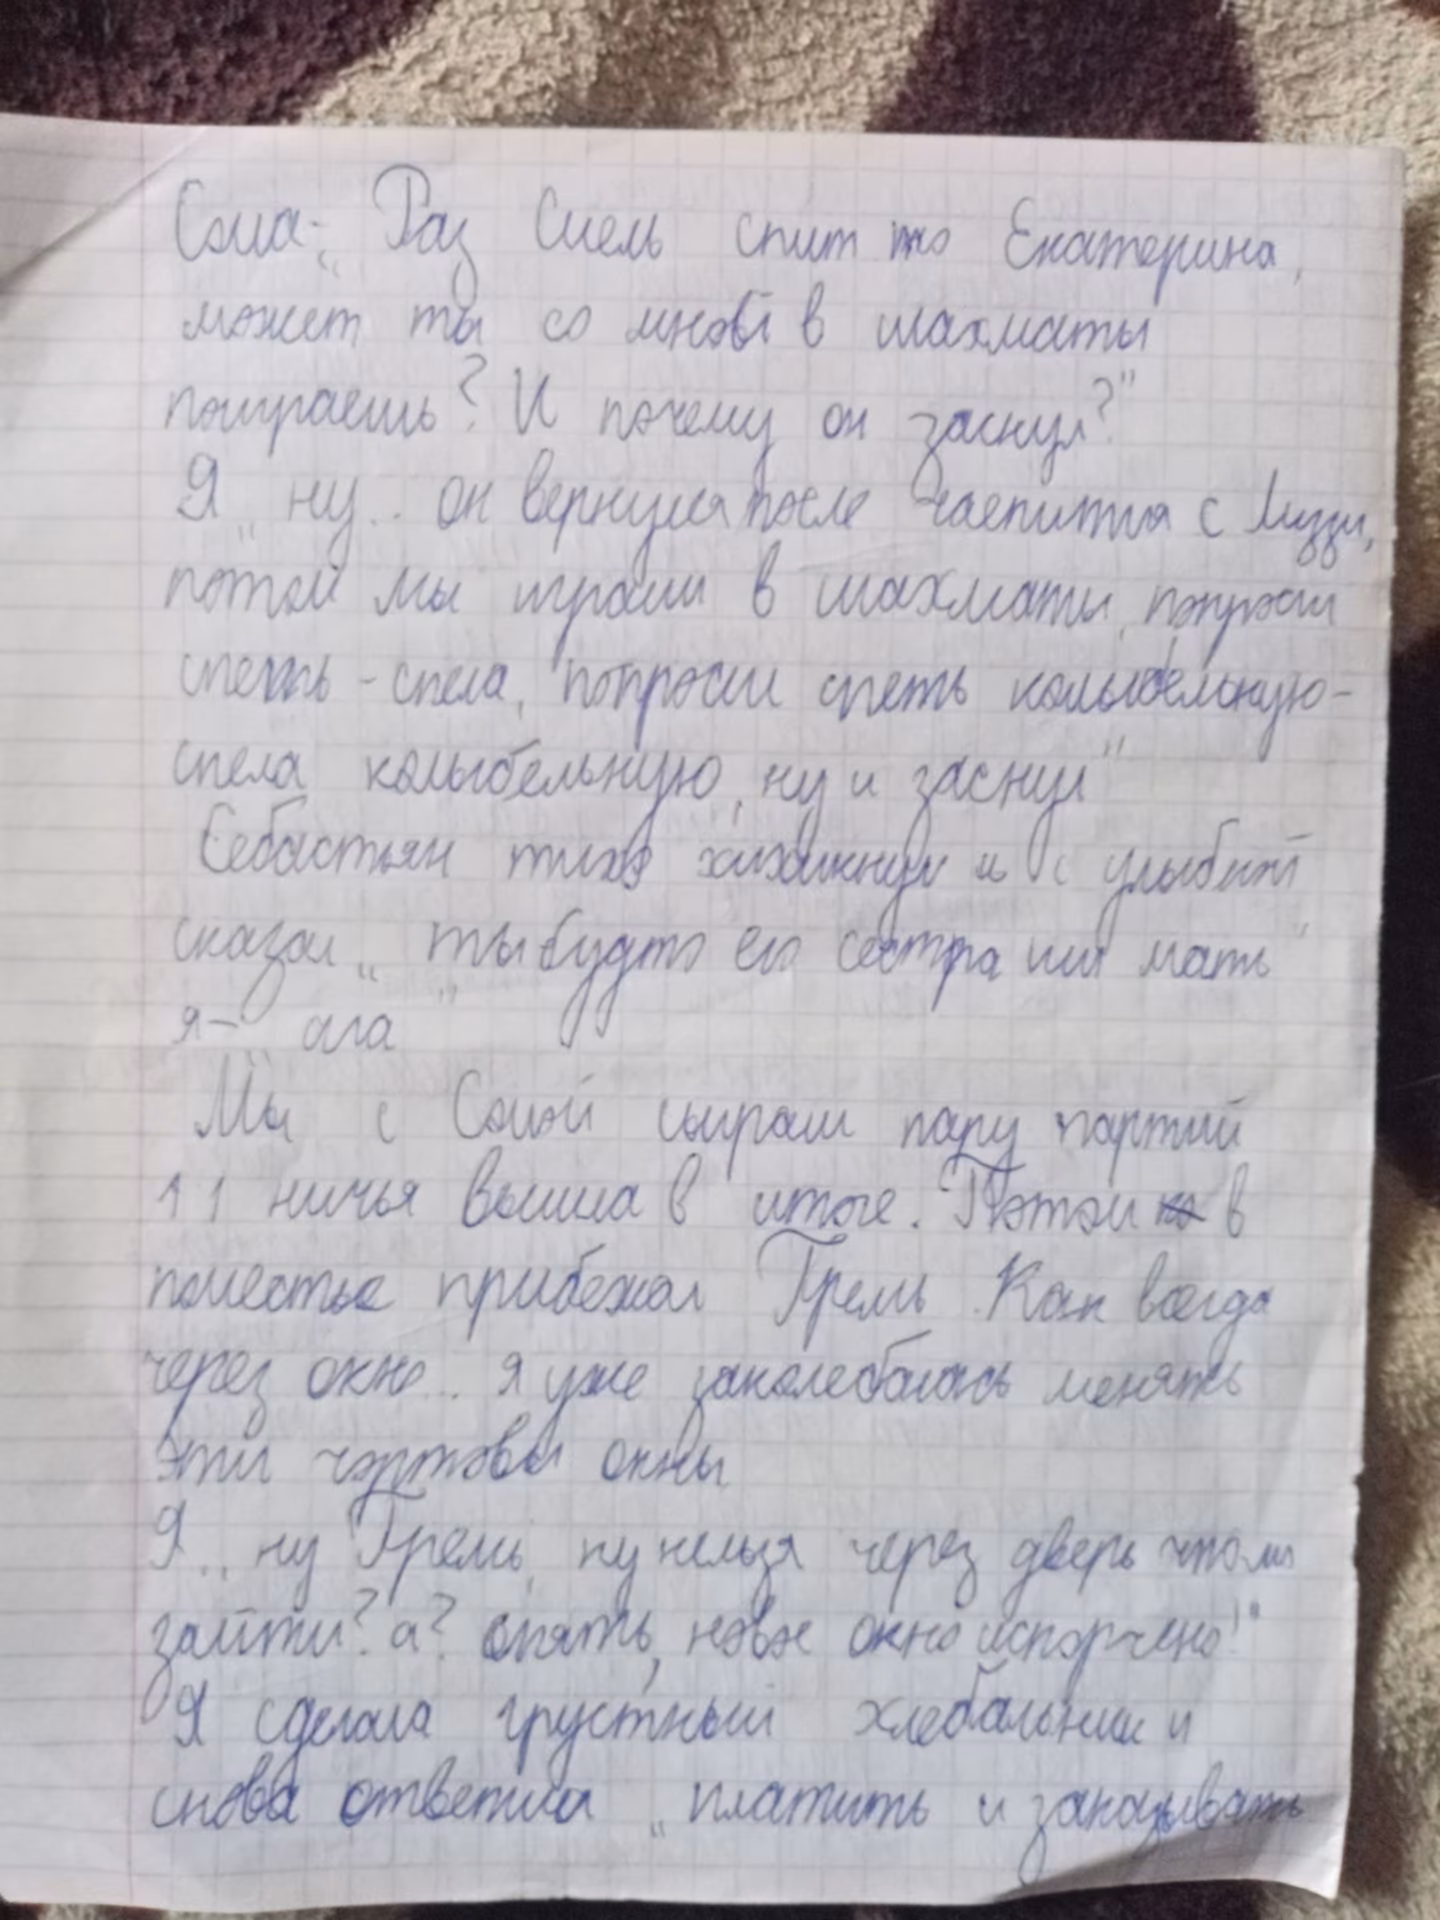 Сома-„ Раз Сиель спит то Екатерина,
может ты со мной в шахматы
поиграешь? И почему он заснул?"
Я „ ну... он вернулся после чаепития с Лиззи,
потом мы играли в шахматы, попросил
спеть - спела, попросил спеть колыбельную-
спела колыбельную, ну и заснул"
Себастьян тихо хихикнул и с улыбкой
сказал „ ты будто его сестра или мать"
я- „ ага "
Мы с Сомой сыграли пару партий
1 1 ничья вышла в итоге. Потом в
поместье прибежал Грелль. Как всегда
через окно... я уже заколебалась менять
эти чортовы окны
Я „ ну Грелль, ну нельзя через дверь что ли
зайти? а? опять, новое окно испорчено!"
Я сделала грустный хлебальник и
снова ответила „ платить и заказывать